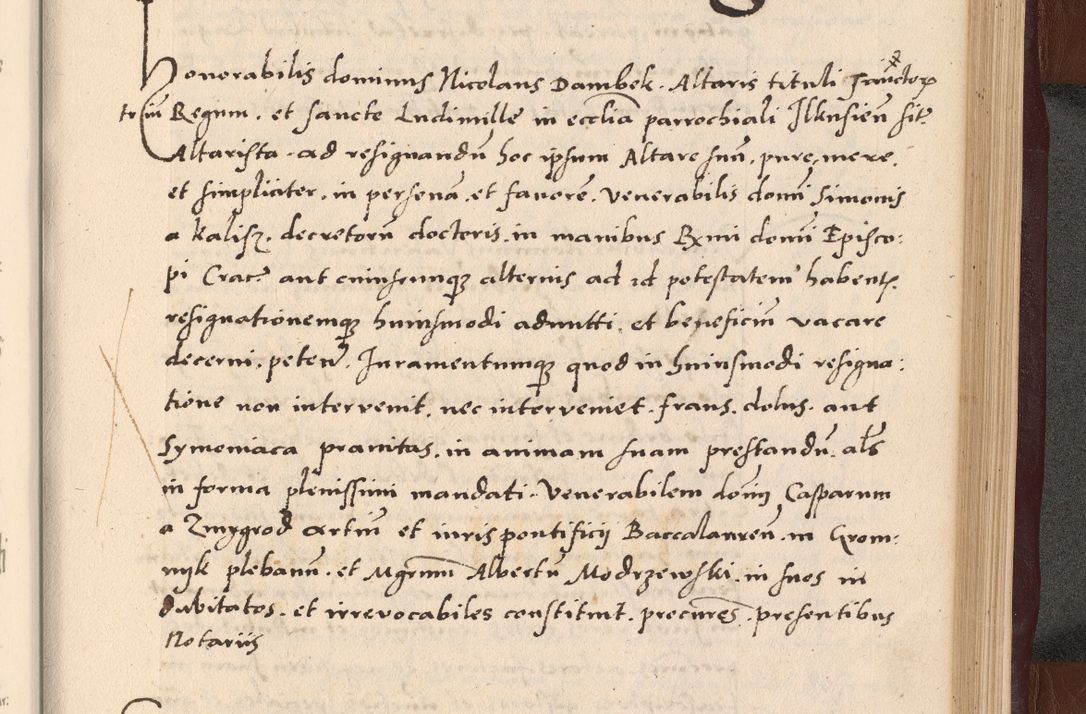 Honorabilis dominus Nicolaus Dambek. Altaris tituli Sanctor
trium Regum. et sancte Ludimille in ecclia parrochiali Ilkusien sit
Altarista. ad resignandu hoc ipsum Altare suu, pure, mere,
et simpliciter, in persona, et favore, Venerabilis domi Simonis
a kalisz, decretoru doctoris, in manibus Rxmi domi Episco:
pi Crac aut cuiuscunque alternis ad id potestatem habent.
resignationemque huiusmodi admitti, et beneficiu vacare
decerni, peten. Iuramentumque quod in huiusmodi resigna:
tione non intervenit, nec interveniet, fraus, dolus, aut
Symoniaca pravitas, in animam suam prestandu. als
in forma plenissimi mandati. Venerabilem domi Casparum
a Zmygrod artiu et iuris pontificij Baccalaureu in Grom:
nyk plebanu. et Mgrum Albertu Modrzewski. in suos in
dubitatos. et irrevocabiles constituit. procures. presentibus
Notariis